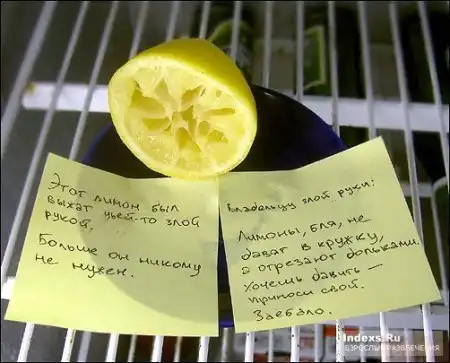 Этот лимон был
выжат чьей-то злой
рукой.
Больше он никому
не нужен.
Владельцу злой руки:
Лимоны, бля, не
давят в кружку,
а отрезают дольками.
Хочешь давить —
приноси свой.
Заебало.
Indexs.Ru
ВЗРОСЛЫЕ РАЗВЛЕЧЕНИЯ